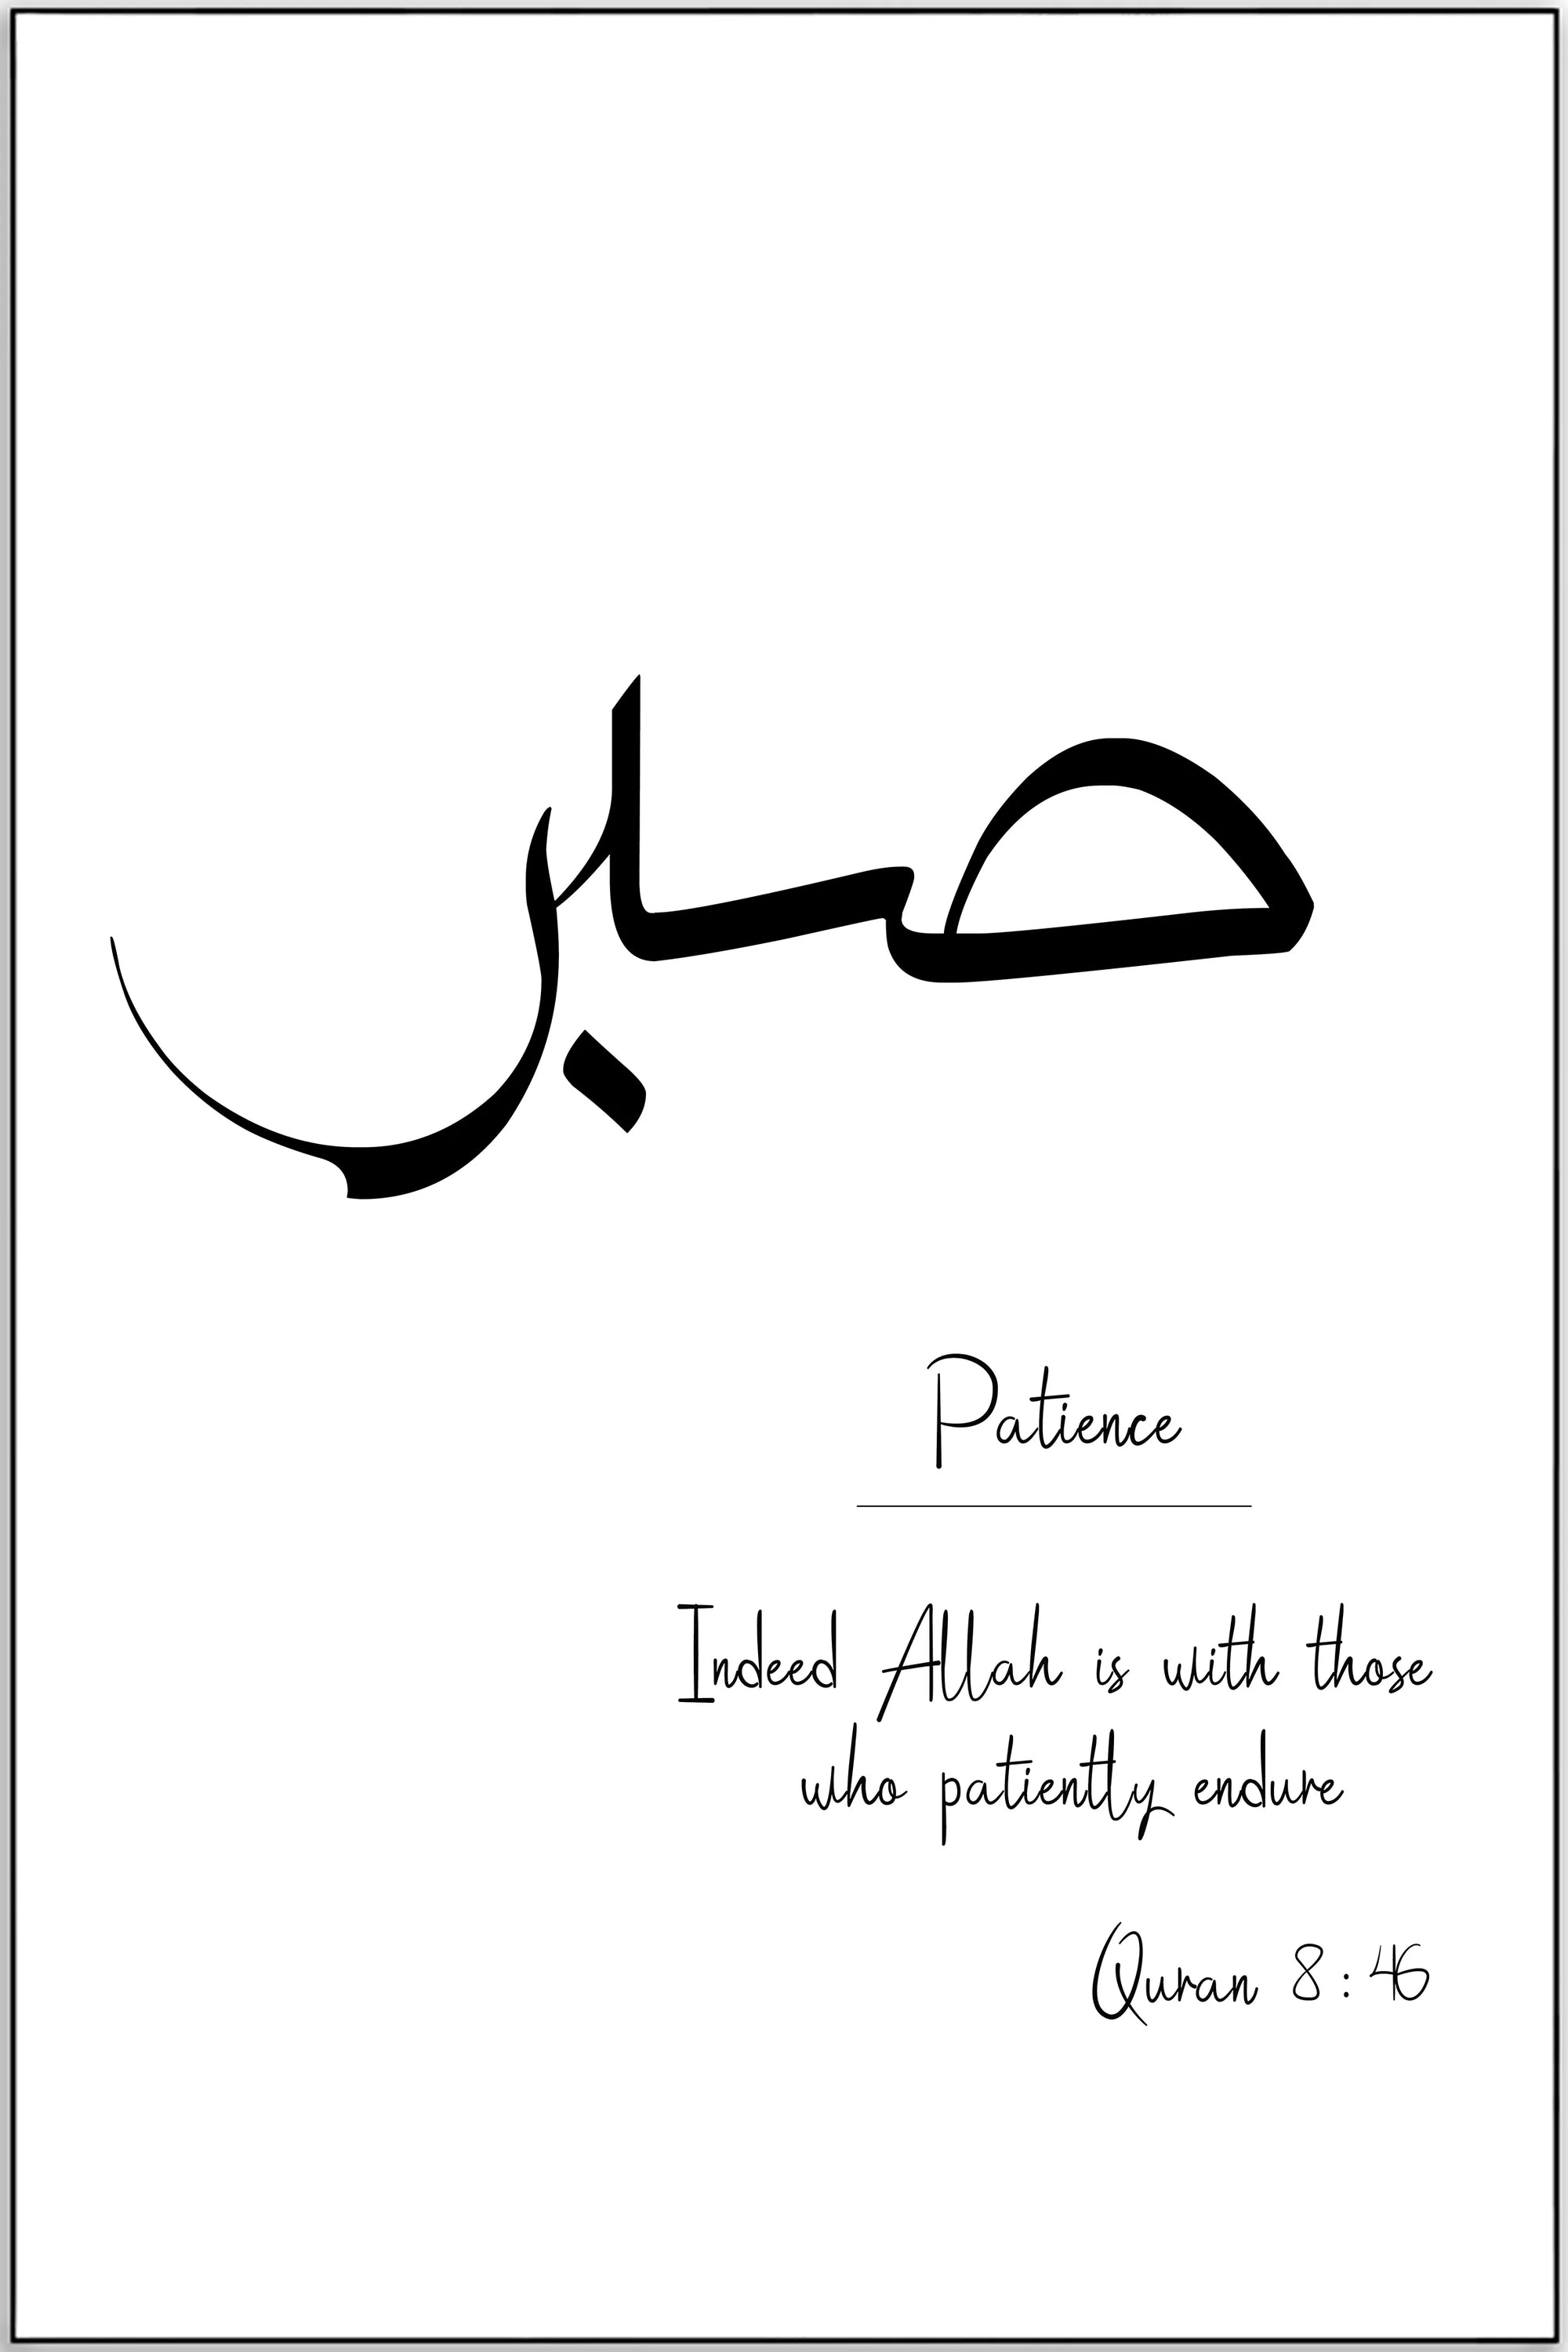 صبر
Patience
Indeed Allah is with those
who patiently endure
Quran 8:46